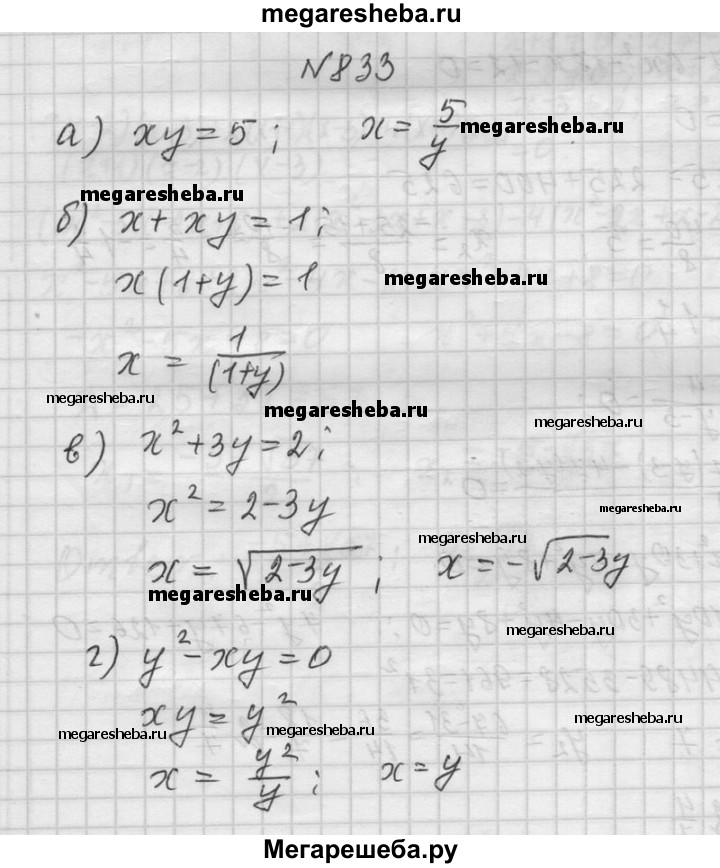 megaresheba.ru
№833
а) xy = 5; x = 5/y megaresheba.ru
megaresheba.ru
б) x + xy = 1;
x(1+y) = 1 megaresheba.ru
x = 1/(1+y)
megaresheba.ru megaresheba.ru megaresheba.ru
в) x² + 3y = 2;
x² = 2 - 3y megaresheba.ru
megaresheba.ru
x = √2-3y; x = -√2-3y
megaresheba.ru
megaresheba.ru
г) y² - xy = 0
xy = y²
megaresheba.ru megaresheba.ru megaresheba.ru
x = y²/y; x = y
Мегарешеба.ру